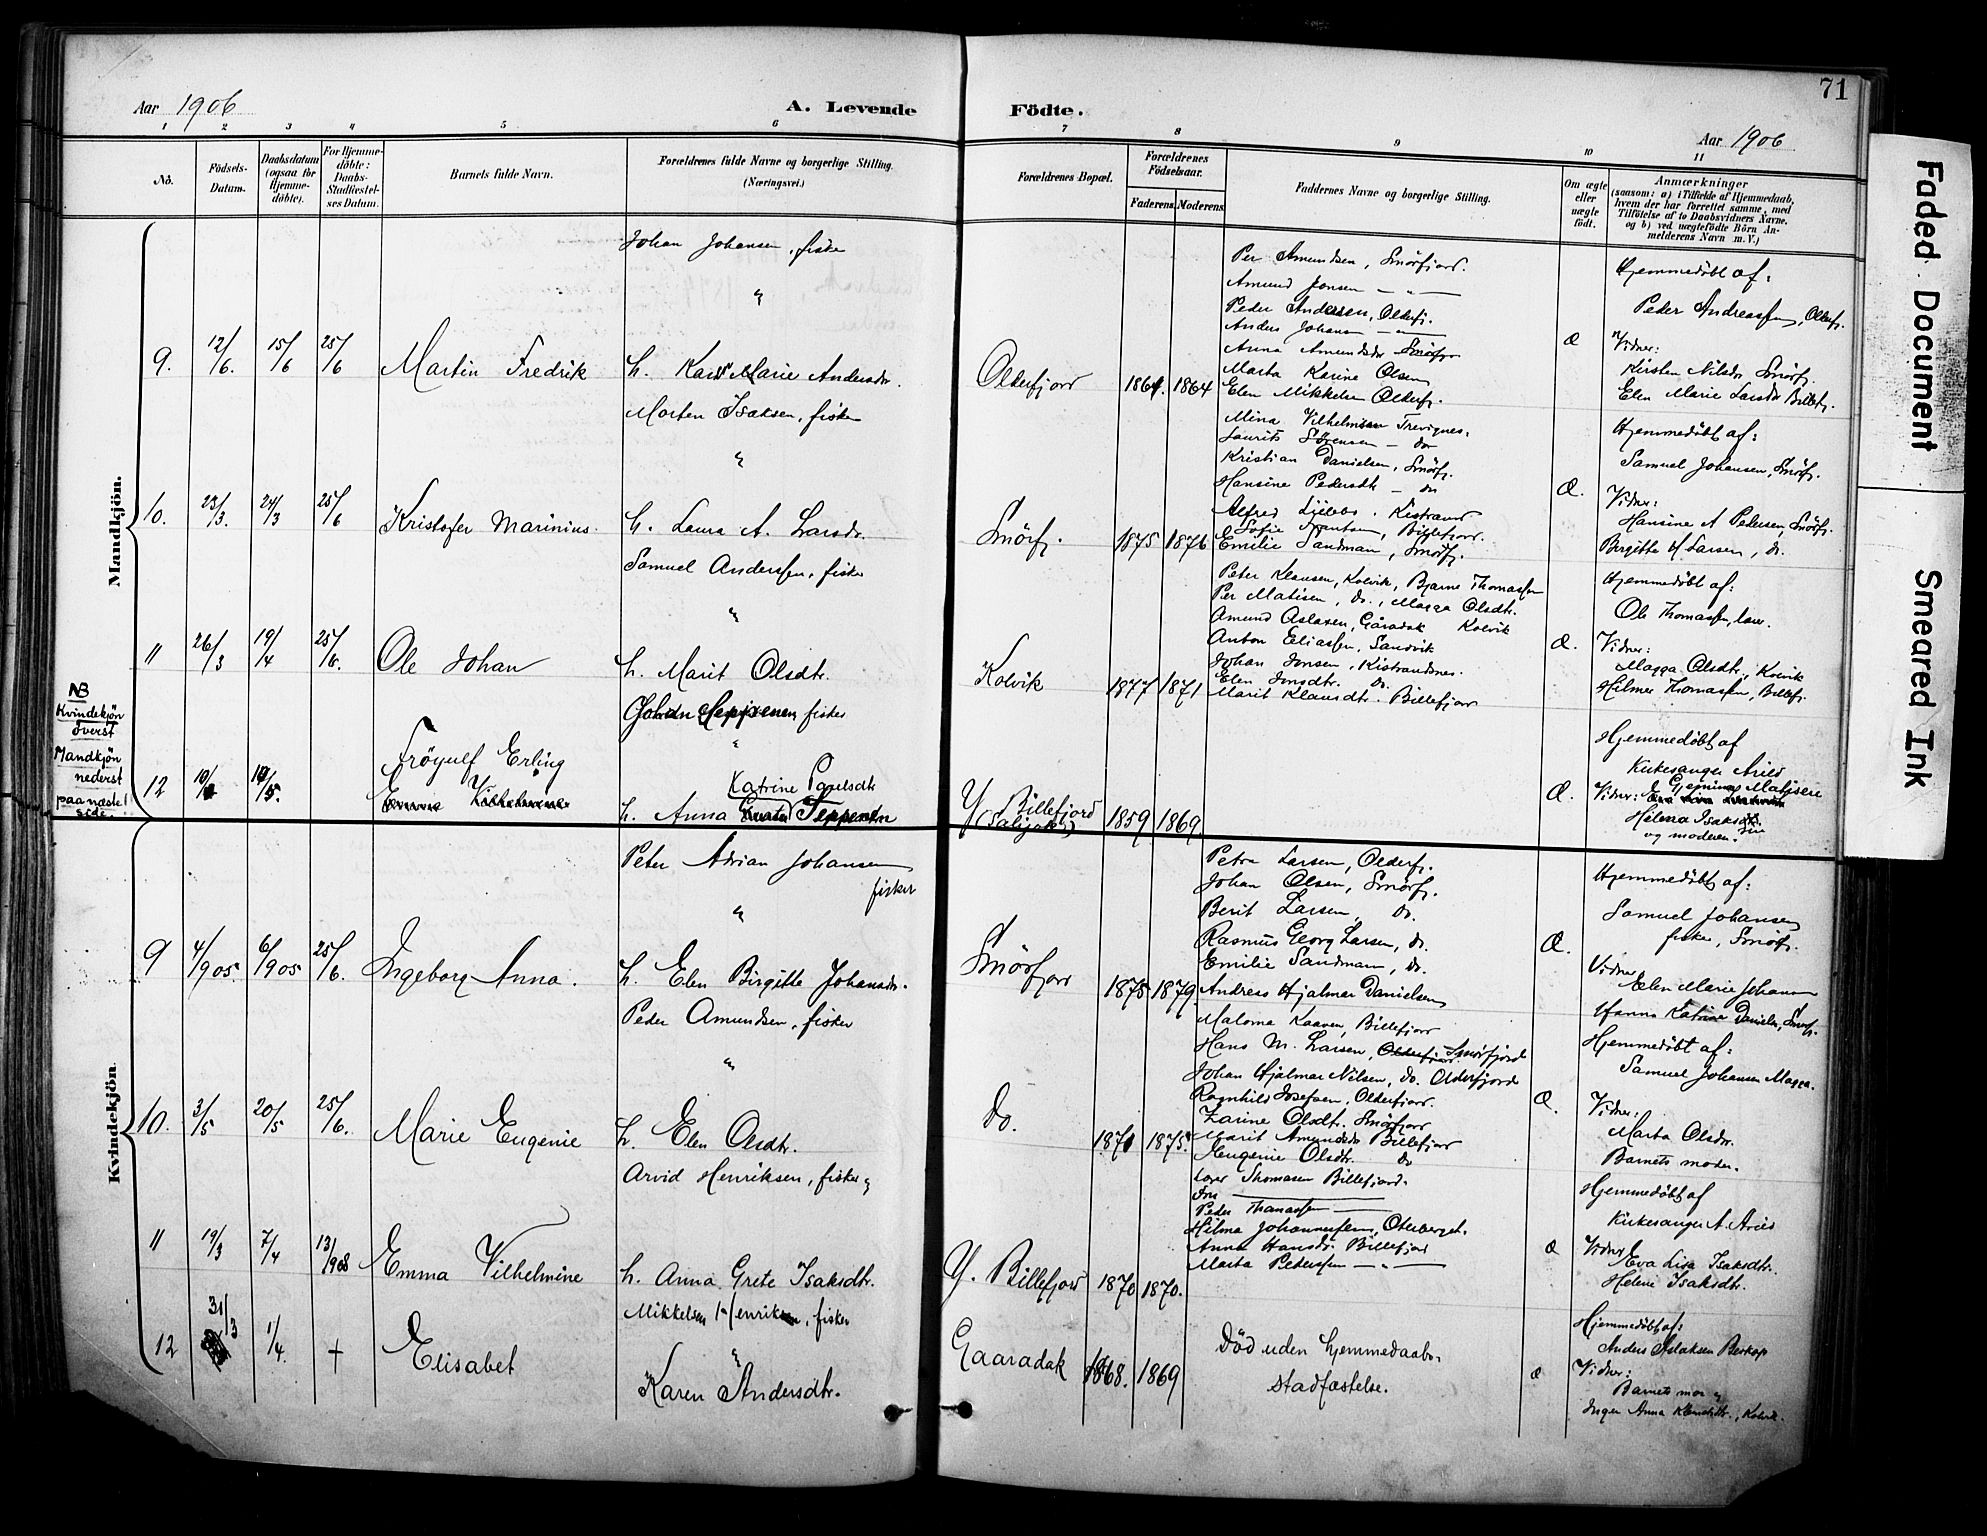 71
Aar 1906
A. Levende Födte.
Aar 1906
1 2 3 4 5 6 7 8 9 10 11
No.
Födsels-Datum.
Daabsdatum (ogsaa for Hjemme-döbte).
For Hjemme-döbte: Daabs-Stadfæstel-ses Datum.
Barnets fulde Navn.
Forældrenes fulde Navne og borgerlige Stilling. (Næringsvei.)
Forældrenes Bopæl.
Forældrenes Födselsaar.
Faderens. Moderens.
Faddernes Navne og borgerlige Stilling.
Om ægte eller uægte födt.
Anmærkninger
(saasom: a) i Tilfælde af Hjemmedaab,
hvem der har forrettet samme, med
Tilföielse af to Daabsvidners Navne,
og b) ved uægtefödte Börn An-
melderens Navn m. V.)
Mandkjön.
9. 12/6. 15/6 25/6 Martin Fredrik
Johan Johansen, fiske
"
h. Marie Andersdr.
Olderfjord 1864. 1864
Per Amundsen, Smörfjord.
Amund Jonsen — " —
Peder Andersen, Olderfj.
Anders Johansn — " —
Anna Amundsdr Smörfjr
Marta Karine Olsen
Elen Mikkelsn Olderfj.
Æ
Hjemmedöbt af:
Peder Andreassen, Olderfj.
Vidner:
Kirsten Nilsdr Smörfj.
Elen Marie Larsdr Billefj.
10. 23/3. 24/3 25/6 Kristofer Marinius.
Morten Isaksen, fisker
"
h. Laura A. Larsdr.
Smörfj. 1875 1876
Mina Vilhelmsen Trevignes.
Laurits Sörensen — do
Kristian Danielsen, Smörfj.
Hansine Pedersdtr — do
Alfred , Kistrand
Sofie , Billefjord.
Emilie Sandman, Smörfj.
Æ.
Hjemmedöbt af:
Samuel Johansen, Smörfj.
Vidner:
Hansine A Pedersen, Smörfj.
Birgitte M Larsen, do.
11 26/3 19/4 25/6. Ole Johan
Samuel Anderssen, fisker
"
h. Marit Olsdtr.
Kolvik 1877 1871
Peter Klausen, Kolvik, Bjarne Thomassen
Per Matisen, do., Magga Olsdtr.
Amund Aslaxen, Gåradak Kolvik
Anton Eliassen, Sandvik
Johan Jonsen, Kistrandnes.
Elen Jonsdtr. Do.
Marit Klausdtr. Billefjord
Æ.
Hjemmedöbt af:
Ole Thomassen, læst.
Vidner:
Magga Olsdtr., Kolvik
Hilmer Thomassen, Billefj.
NB
Kvindekjön
överst
Mandkjön
nederst
paa næste
side!
12 Fröyulf Erling
Johan Seppenen, fisker
"
Katrine Paulsdtr
h. Anna Seppenen
Y. Billefjord 1859 1869
Æ.
Hjemmedöbt af
Kirkesanger Aries
Vidner:
Helena Isaksdtr
og moderen.
Kvindekjön.
9 4/905. 6/905 25/6. Ingeborg Anna.
Peter Adrian Johansen
fisker
"
h. Elen Birgitte Johansdr.
Smörfjord 1875 1879.
Petra Larsen, Olderfj.
Johan Olsen, Smörfj.
Berit Larsen, do.
Rasmus Georg Larsen, do.
Emilie Sandmann, do.
Andreas Hjalmar Danielsen
Æ.
Hjemmedöbt af:
Samuel Johansen
fisker, Smörfj.
Vidner
Elen Marie Johansen
Hanna Katrine Danielsn, Smörfj.
10. 3/5 20/5 25/6. Marie Eugenie
Peder Amundsen, fisker
"
h. Elen Olsdtr.
Do. 1871 1875.
Maloma Kaaven, Billefjord
Hans M. Larsen, Olderfjord. Smörfjord
Johan Hjalmar Nilsen, Do. Olderfjord
Ragnhild Josefsen, Olderfjord.
Zarine Olsdtr. Smörfjord
Marit Amundsdr Billefjord
Eugenie Olsdtr. do
Æ.
Hjemmedöbt af:
Samuel Johansen Magga.
Vidner:
Marta Olsdr.
Barnets moder.
11 19/3 7/4 13/ 908 Emma Vilhelmine
Arvid Henriksen, fisker og
h. Anna Grete Isaksdtr.
Y. Billefjord 1870 1870.
Thomasen Billefjord.
Peder Thomassen —
Hilma Johannessen, Oterberget.
Anna Hansdr. Billefjord
Marta Pederssen — " —
Æ
Hjemmedöbt af
Kirkesanger A. Aries
Vidner
Eva Lisa Isaksdtr.
Helene Isaksdtr.
12 31/3 1/4. + Elisabet
Mikkelsen Henriksen, fisker
"
Karen Andersdtr.
Gaaradak 1868. 1869
Död uden hjemmedaabs-
stadfæstelse.
Æ
Hjemmedöbt af:
Anders Aslaksen Berkop
Vidner:
Barnets mor og
Inger Anna Klemetsdtr., Kolvik.
Faded Document
Smeared Ink